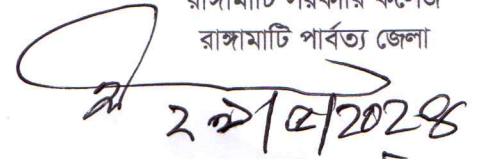 রাঙ্গামাটি সরকারি কলেজ
রাঙ্গামাটি পার্বত্য জেলা
২৯/৫/২০২৪